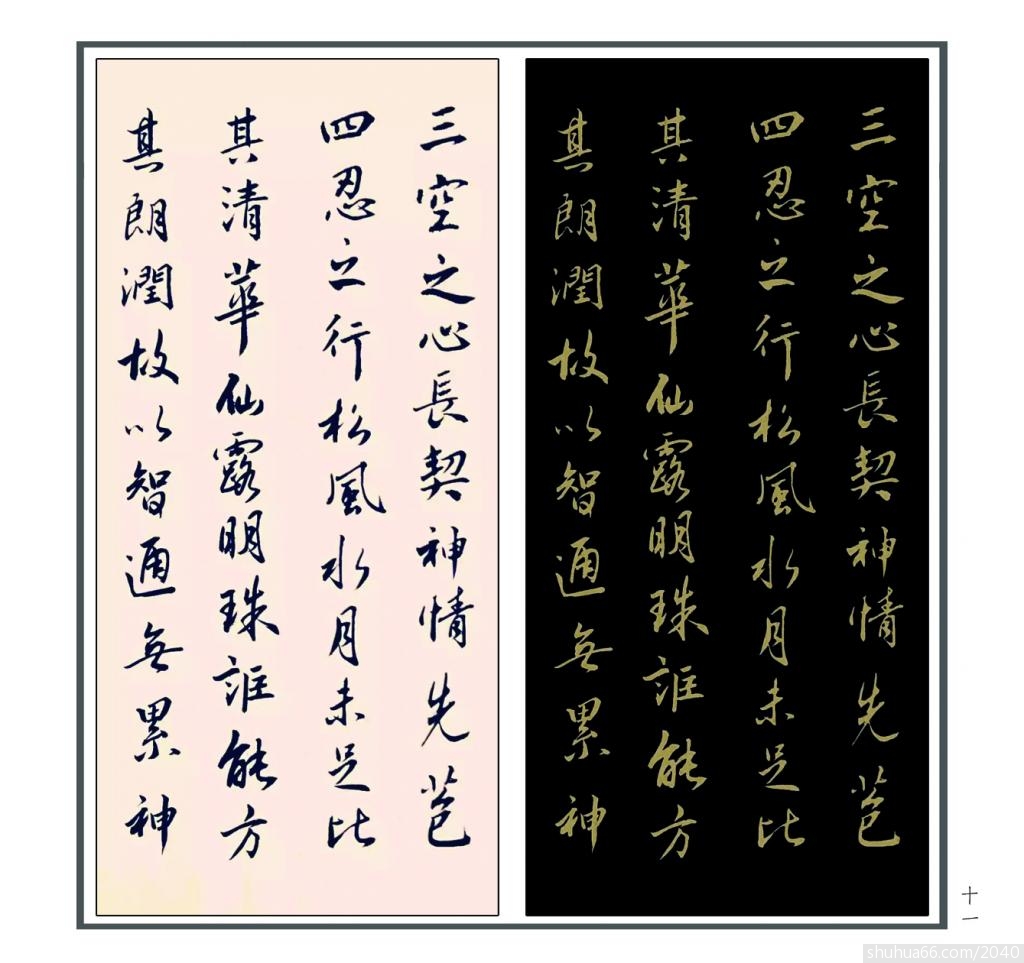 三空之心長契神情先苞
四忍之行松風水月未足比
其清華仙露明珠詎能方
其朗潤故以智通無累神
三空之心長契神情先苞
四忍之行松風水月未足比
其清華仙露明珠詎能方
其朗潤故以智通無累神
十一
shuhua66.com/2040